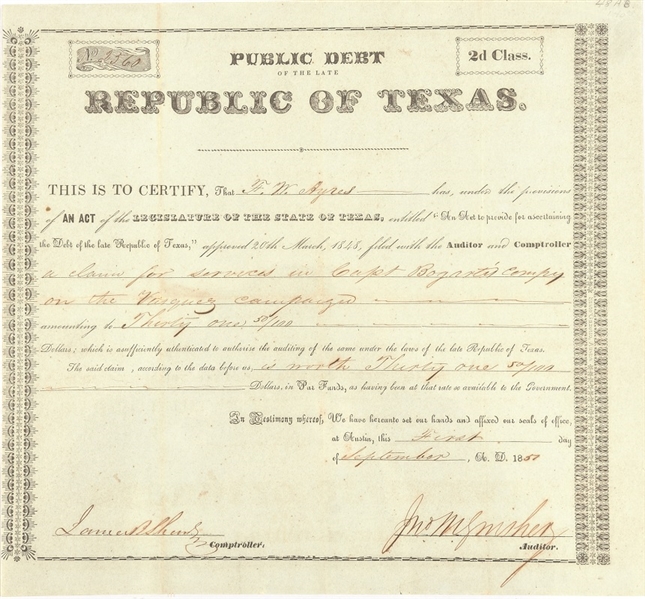 No. 2560
PUBLIC DEBT
2d Class.
OF THE LATE
REPUBLIC OF TEXAS.
THIS IS TO CERTIFY, That F. W. Ayres has, under the provisions
of AN ACT of the LEGISLATURE OF THE STATE OF TEXAS, entitled "An Act to provide for ascertaining
the Debt of the late Republic of Texas," approved 20th March, 1848, filed with the Auditor and Comptroller
a claim for services in Capt Bogart's Compy
on the Vasquez campaign
amounting to Thirty one 50/100
Dollars; which is sufficiently authenticated to authorize the auditing of the same under the laws of the late Republic of Texas.
The said claim, according to the data before us, is worth Thirty one 50/100
Dollars, in Par Funds, as having been at that rate so available to the Government.
In Testimony whereof, We have hereunto set our hands and affixed our seals of office,
at Austin, this First day
of September, A. D. 1850
James B Shaw
Comptroller.
Jno M Swisher
Auditor.